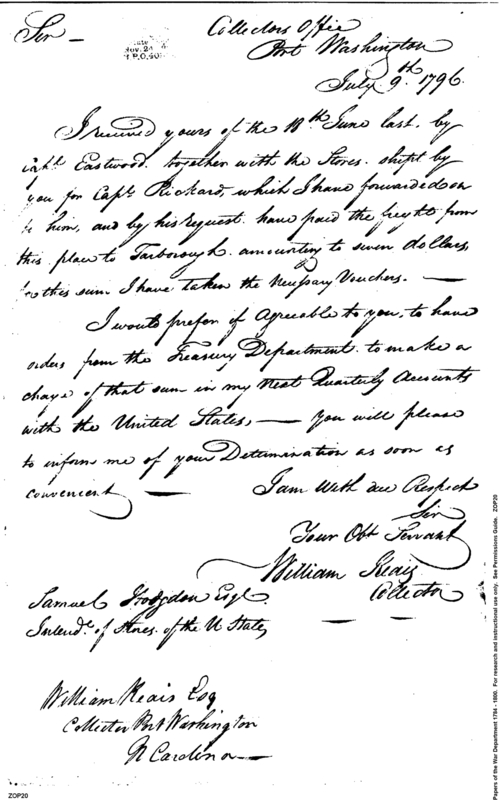 Sir —
Collectors Office
Port Washington
July 9th 1796.
Nov. 24
P.O. 40
I received yours of the 18th June last, by
Capt Eastwood. together with the Stores. shipt by
you for Capt Rickard, which I have forwarded on
to him, and by his request. have paid the freight from
this place to Tarborough. amounting to seven dollars,
for this sum I have taken the necessary Vouchers. —
I would prefer if Agreeable to you, to have
orders from the Treasury Department. to make a
charge of that sum in my Next Quarterly Accounts
with the United States, — You will please
to inform me of your Determination as soon as
convenient —
I am with due Respect
Sir
Your Obt Servant
William Keais
Collector
Samuel Hodgdon Esqr.
Intendt. of Stores. of the U States
William Keais Esq
Collector Port Washington
N Carolina —
ZOP20
Papers of the War Department 1784 - 1800. For research and instructional use only. See Permissions Guide. ZOP20